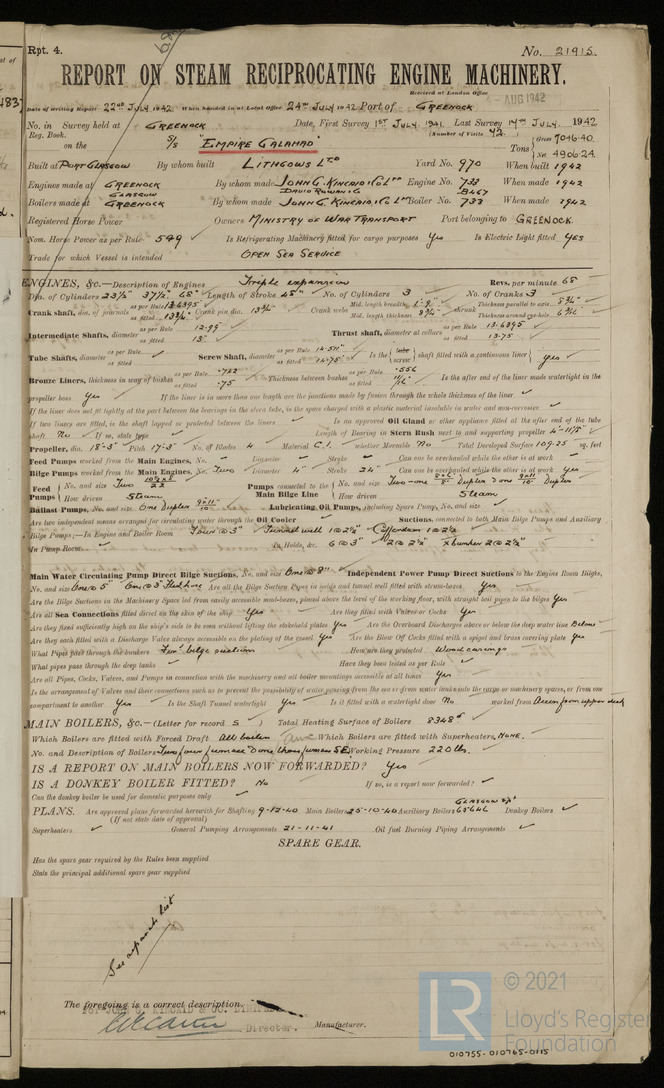 Rpt. 4.
No. 21915.
REPORT ON STEAM RECIPROCATING ENGINE MACHINERY.
Received at London Office
AUG 1942
Date of writing Report 22nd July 1942 When handed in at Local Office 24th July 1942 Port of Greenock
No. in Survey held at Greenock Date, First Survey 1st July 1941. Last Survey 14th July 1942
Reg. Book. (Number of Visits 42.
on the S/S "Empire Galahad" Tons Gross 7046.40 Net 4906.24
Built at Port Glasgow By whom built Lithgows Ltd Yard No. 970 When built 1942
Engines made at Greenock By whom made John G. Kincaid & Co Ltd Engine No. 733 When made 1942
Glasgow David Rowan & Co B467
Boilers made at Greenock By whom made John G. Kincaid & Co Ltd Boiler No. 733 When made 1942
Registered Horse Power Owners Ministry of War Transport Port belonging to Greenock.
Nom. Horse Power as per Rule 549 Is Refrigerating Machinery fitted for cargo purposes Yes Is Electric Light fitted Yes
Trade for which Vessel is intended Open Sea Service
ENGINES, &c.—Description of Engines Triple expansion Revs. per minute 68
Dia. of Cylinders 23½" 37½" 68" Length of Stroke 48" No. of Cylinders 3 No. of Cranks 3
Crank shaft, dia. of journals as per Rule 13.6395 as fitted 13¾" Crank pin dia. 13¾" Crank webs Mid. length breadth 1'-9" Mid. length thickness 8¾" shrunk Thickness parallel to axis 8¾" Thickness around eye-hole
Intermediate Shafts, diameter as per Rule 12.99 as fitted 13" Thrust shaft, diameter at collars as per Rule 13.6395 as fitted 13.75
Tube Shafts, diameter as per Rule as fitted Screw Shaft, diameter as per Rule 14.511" as fitted 14.75" Is the tube screw shaft fitted with a continuous liner yes
Bronze Liners, thickness in way of bushes as per Rule .722 as fitted .75 Thickness between bushes as per Rule .556 as fitted 11/16" Is the after end of the liner made watertight in the
propeller boss Yes If the liner is in more than one length are the junctions made by fusion through the whole thickness of the liner
If the liner does not fit tightly at the part between the bearings in the stern tube, is the space charged with a plastic material insoluble in water and non-corrosive
If two liners are fitted, is the shaft lapped or protected between the liners Is an approved Oil Gland or other appliance fitted at the after end of the tube
shaft No If so, state type Length of Bearing in Stern Bush next to and supporting propeller 4'-11⅝"
Propeller, dia. 18'-3" Pitch 17'-3" No. of Blades 4 Material C.I. whether Moveable No Total Developed Surface 109.25 sq. feet
Feed Pumps worked from the Main Engines, No. Diameter Stroke Can one be overhauled while the other is at work
Bilge Pumps worked from the Main Engines, No. Two Diameter 4" Stroke 24" Can one be overhauled while the other is at work Yes
Feed Pumps No. and size Two Pumps connected to the Main Bilge Line No. and size Two-one Duplex & one Duplex
How driven Steam How driven Steam
Ballast Pumps, No. and size One Duplex Lubricating Oil Pumps, including Spare Pump, No. and size
Are two independent means arranged for circulating water through the Oil Cooler Suctions, connected to both Main Bilge Pumps and Auxiliary
Bilge Pumps;—In Engine and Boiler Room Four @ 3" Tunnel well 1 @ 2½" Cofferdam 1 @ 2½
In Pump Room In Holds, &c. 6 @ 3" 2 @ 2½" X bunker 2 @ 2½"
Main Water Circulating Pump Direct Bilge Suctions, No. and size One @ 8" Independent Power Pump Direct Suctions to the Engine Room Bilges,
No. and size One @ 5" Are all the Bilge Suction Pipes in holds and tunnel well fitted with strum-boxes Yes
Are the Bilge Suctions in the Machinery Space led from easily accessible mud-boxes, placed above the level of the working floor, with straight tail pipes to the bilges Yes
Are all Sea Connections fitted direct on the skin of the ship Yes Are they fitted with Valves or Cocks Yes
Are they fixed sufficiently high on the ship's side to be seen without lifting the stokehold plates Yes Are the Overboard Discharges above or below the deep water line Below
Are they each fitted with a Discharge Valve always accessible on the plating of the vessel Yes Are the Blow Off Cocks fitted with a spigot and brass covering plate Yes
What Pipes pass through the bunkers bilge suction How are they protected Wood casings
What pipes pass through the deep tanks Have they been tested as per Rule
Are all Pipes, Cocks, Valves, and Pumps in connection with the machinery and all boiler mountings accessible at all times Yes
Is the arrangement of Valves and their connections such as to prevent the possibility of water passing from the sea or from water tanks into the cargo or machinery spaces, or from one
compartment to another Yes Is the Shaft Tunnel watertight Yes Is it fitted with a watertight door No worked from Access from upper deck
MAIN BOILERS, &c.—(Letter for record S ) Total Heating Surface of Boilers 8348
Which Boilers are fitted with Forced Draft All boilers Which Boilers are fitted with Superheaters None.
No. and Description of Boilers Two four furnace & one three furnace S.E. Working Pressure 220 lbs.
IS A REPORT ON MAIN BOILERS NOW FORWARDED? Yes
IS A DONKEY BOILER FITTED? No If so, is a report now forwarded?
Can the donkey boiler be used for domestic purposes only
PLANS. Are approved plans forwarded herewith for Shafting 9-12-40 Main Boilers 25-10-40 Auxiliary Boilers Glasgow Rpt 65646 Donkey Boilers
(If not state date of approval)
Superheaters General Pumping Arrangements 21-11-41 Oil fuel Burning Piping Arrangements
SPARE GEAR.
Has the spare gear required by the Rules been supplied
State the principal additional spare gear supplied
See separate list
The foregoing is a correct description.
FOR JOHN G. KINCAID & CO. LIMITED
Director. Manufacturer.
LR © 2021
Lloyd's Register
Foundation
010755-010765-0115